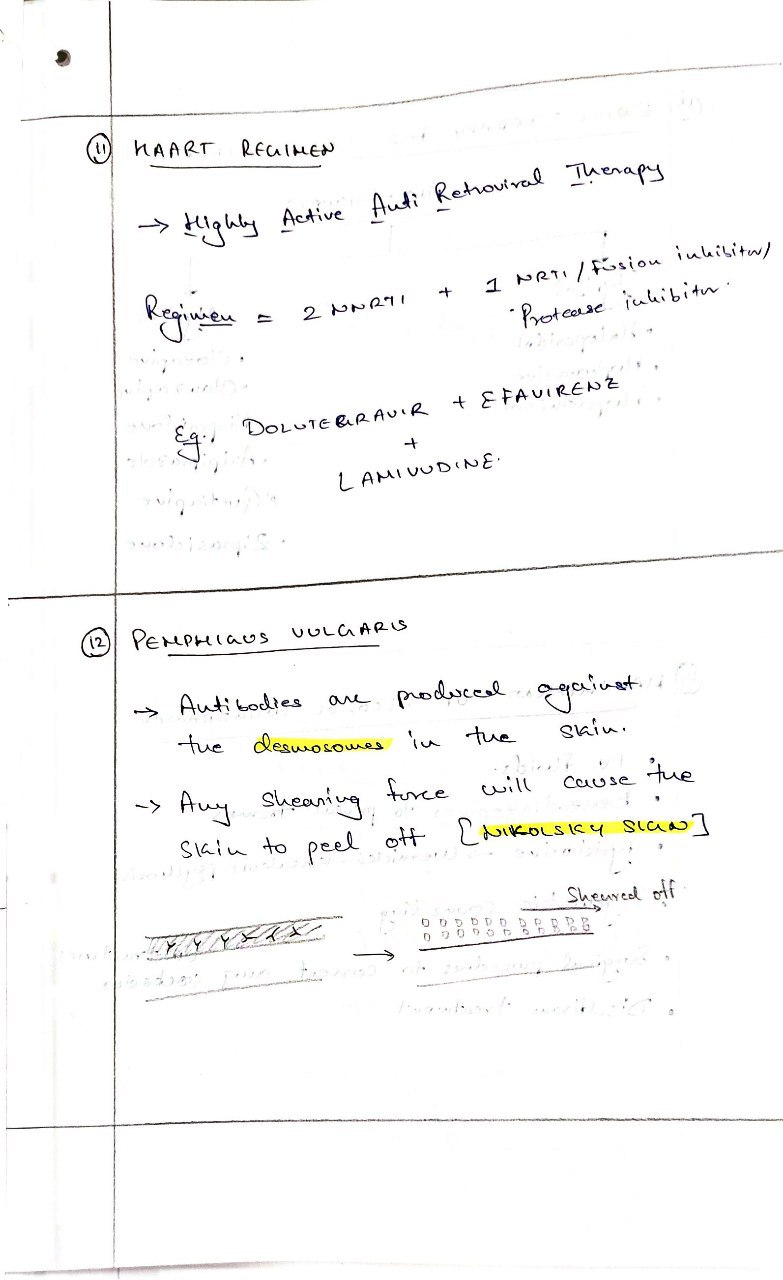 11 HAART REGIMEN
→ Highly Active Anti Retroviral Therapy
Regimen = 2 NNRTI + 1 NRTI / Fusion inhibitor/
Protease inhibitor.
Eg., DOLUTEGRAVIR + EFAVIRENZ
+
LAMIVUDINE.
12 PEMPHIGUS VULGARIS
→ Antibodies are produced against
the desmosomes in the skin.
→ Any shearing force will cause the
skin to peel off [NIKOLSKY SIGN]
Sheared off